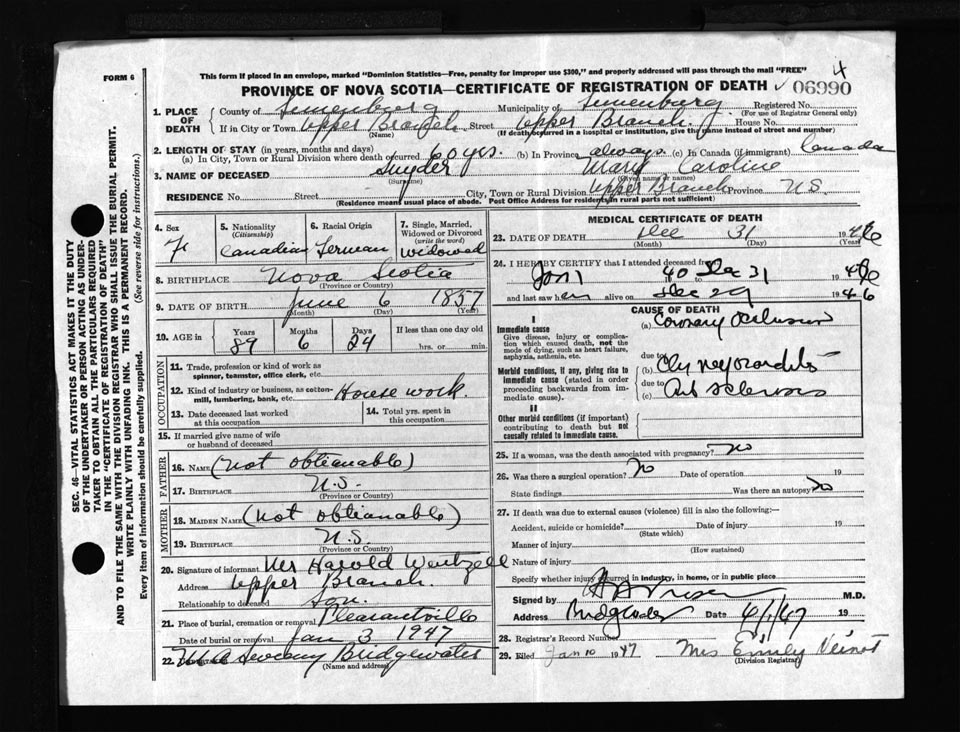 4
FORM 6
This form if placed in an envelope, marked "Dominion Statistics—Free, penalty for improper use $300," and properly addressed will pass through the mail "FREE"
PROVINCE OF NOVA SCOTIA—CERTIFICATE OF REGISTRATION OF DEATH ✓ 06990
SEC. 46—VITAL STATISTICS ACT MAKES IT THE DUTY
OF THE UNDERTAKER OR PERSON ACTING AS UNDER-
TAKER TO OBTAIN ALL THE PARTICULARS REQUIRED
IN THE "CERTIFICATE OF REGISTRATION OF DEATH"
AND TO FILE THE SAME WITH THE DIVISION REGISTRAR WHO SHALL ISSUE THE BURIAL PERMIT.
WRITE PLAINLY WITH UNFADING INK. THIS IS A PERMANENT RECORD.
Every item of information should be carefully supplied. (See reverse side for instructions.)
1. PLACE OF DEATH
County of Lunenburg Municipality of Lunenburg Registered No.
(For use of Registrar General only)
If in City or Town Upper Branch Street Upper Branch. House No.
(Name) (If death occurred in a hospital or institution, give the name instead of street and number)
2. LENGTH OF STAY (in years, months and days)
(a) In City, Town or Rural Division where death occurred 60 yrs. (b) In Province always. (c) In Canada (if immigrant) Canada
3. NAME OF DECEASED Snyder Mary Caroline
(Surname) (Given name or names)
RESIDENCE No. Street City, Town or Rural Division Upper Branch Province N.S.
(Residence means usual place of abode. Post Office Address for residents in rural parts not sufficient)
4. Sex
F
5. Nationality
(Citizenship)
Canadian
6. Racial Origin
German
7. Single, Married, Widowed or Divorced
(write the word)
widowed
8. BIRTHPLACE Nova Scotia
(Province or Country)
9. DATE OF BIRTH June 6 1857
(Month) (Day) (Year)
10. AGE in Years Months Days If less than one day old
89 6 24 hrs. or min.
OCCUPATION
11. Trade, profession or kind of work as
spinner, teamster, office clerk, etc.
12. Kind of industry or business, as cotton-
mill, lumbering, bank, etc. House work.
13. Date deceased last worked
at this occupation
14. Total yrs. spent in
this occupation
15. If married give name of wife
or husband of deceased
FATHER
16. NAME (not obtianable)
17. BIRTHPLACE N.S.
(Province or Country)
MOTHER
18. MAIDEN NAME (not obtianable)
19. BIRTHPLACE N.S.
(Province or Country)
20. Signature of informant Mr Harold Wentzell
Address Upper Branch.
Relationship to deceased Son.
21. Place of burial, cremation or removal Pleasantville
Date of burial or removal Jan 3 1947
22. Sweeny Bridgewater
(Name and address)
MEDICAL CERTIFICATE OF DEATH
23. DATE OF DEATH Dec 31 1946
(Month) (Day) (Year)
24. I HEREBY CERTIFY that I attended deceased from
40 Dec 31 1946
and last saw her alive on Dec 29 1946
CAUSE OF DEATH
I
Immediate cause
Give disease, injury or complica-
tion which caused death, not the
mode of dying, such as heart failure,
asphyxia, asthenia, etc.
(a) Coronary Occlusion
Morbid conditions, if any, giving rise to
immediate cause (stated in order
proceeding backwards from im-
mediate cause).
due to
(b) Myocarditis
due to
(c) Art Sclerosis
II
Other morbid conditions (if important)
contributing to death but not
causally related to immediate cause.
25. If a woman, was the death associated with pregnancy? No
26. Was there a surgical operation? No Date of operation 19
State findings Was there an autopsy? No
27. If death was due to external causes (violence) fill in also the following:—
Accident, suicide or homicide? Date of injury 19
(State which)
Manner of injury
(How sustained)
Nature of injury
Specify whether injury occurred in industry, in home, or in public place
Signed by M.D.
Address Bridgewater Date 4/1/47 19
28. Registrar's Record Number
29. Filed Jan 10 1947 Mrs Emily Veinot
(Division Registrar)